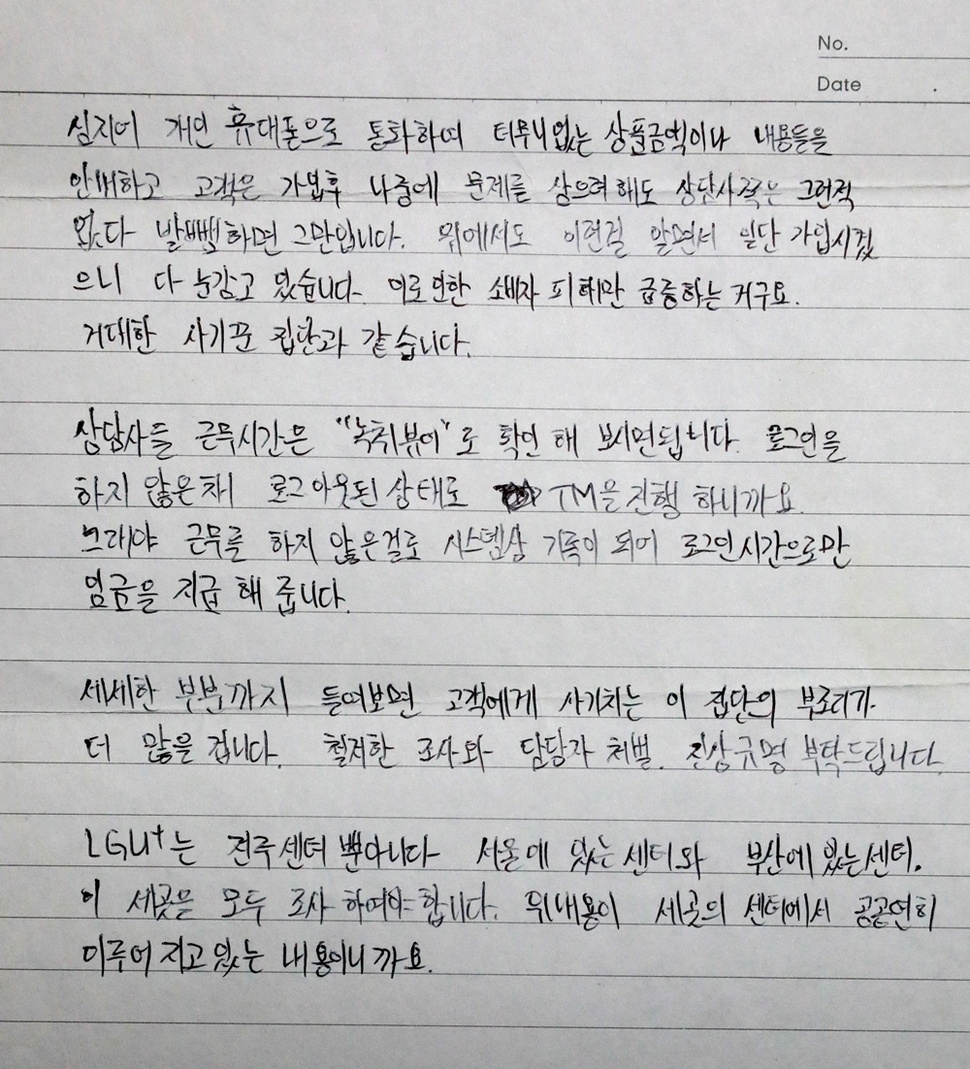 No.
Date
심지어 개인 휴대폰으로 통화하여 터무니없는 상품금액이나 내용들을
안내하고 고객은 가입후 나중에 문제를 삼으려해도 상담사쪽은 그런적
없다 발뺌하면 그만입니다. 위에서도 이런걸 알면서 일단 가입시켰
으니 다 눈감고 있습니다. 이로인한 소비자 피해만 급증하는 거구요.
거대한 사기꾼 집단과 같습니다.
상담사들 근무시간은 "녹취뷰어"로 확인 해 보시면됩니다. 로그인을
하지 않은채 로그아웃된 상태로 TM을 진행 하니까요.
그래야 근무를 하지 않은걸로 시스템상 기록이 되어 로그인시간으로만
임금을 지급 해 줍니다.
세세한 부분까지 들여보면 고객에게 사기치는 이 집단의 부조리가
더 많을 겁니다. 철저한 조사와 담당자 처벌. 진상규명 부탁드립니다.
LGU+는 전주센터 뿐아니다 서울에 있는센터와 부산에 있는센터.
이 세곳을 모두 조사 하여야합니다. 위내용이 세곳의 센터에서 공공연히
이루어 지고 있는 내용이니까요.